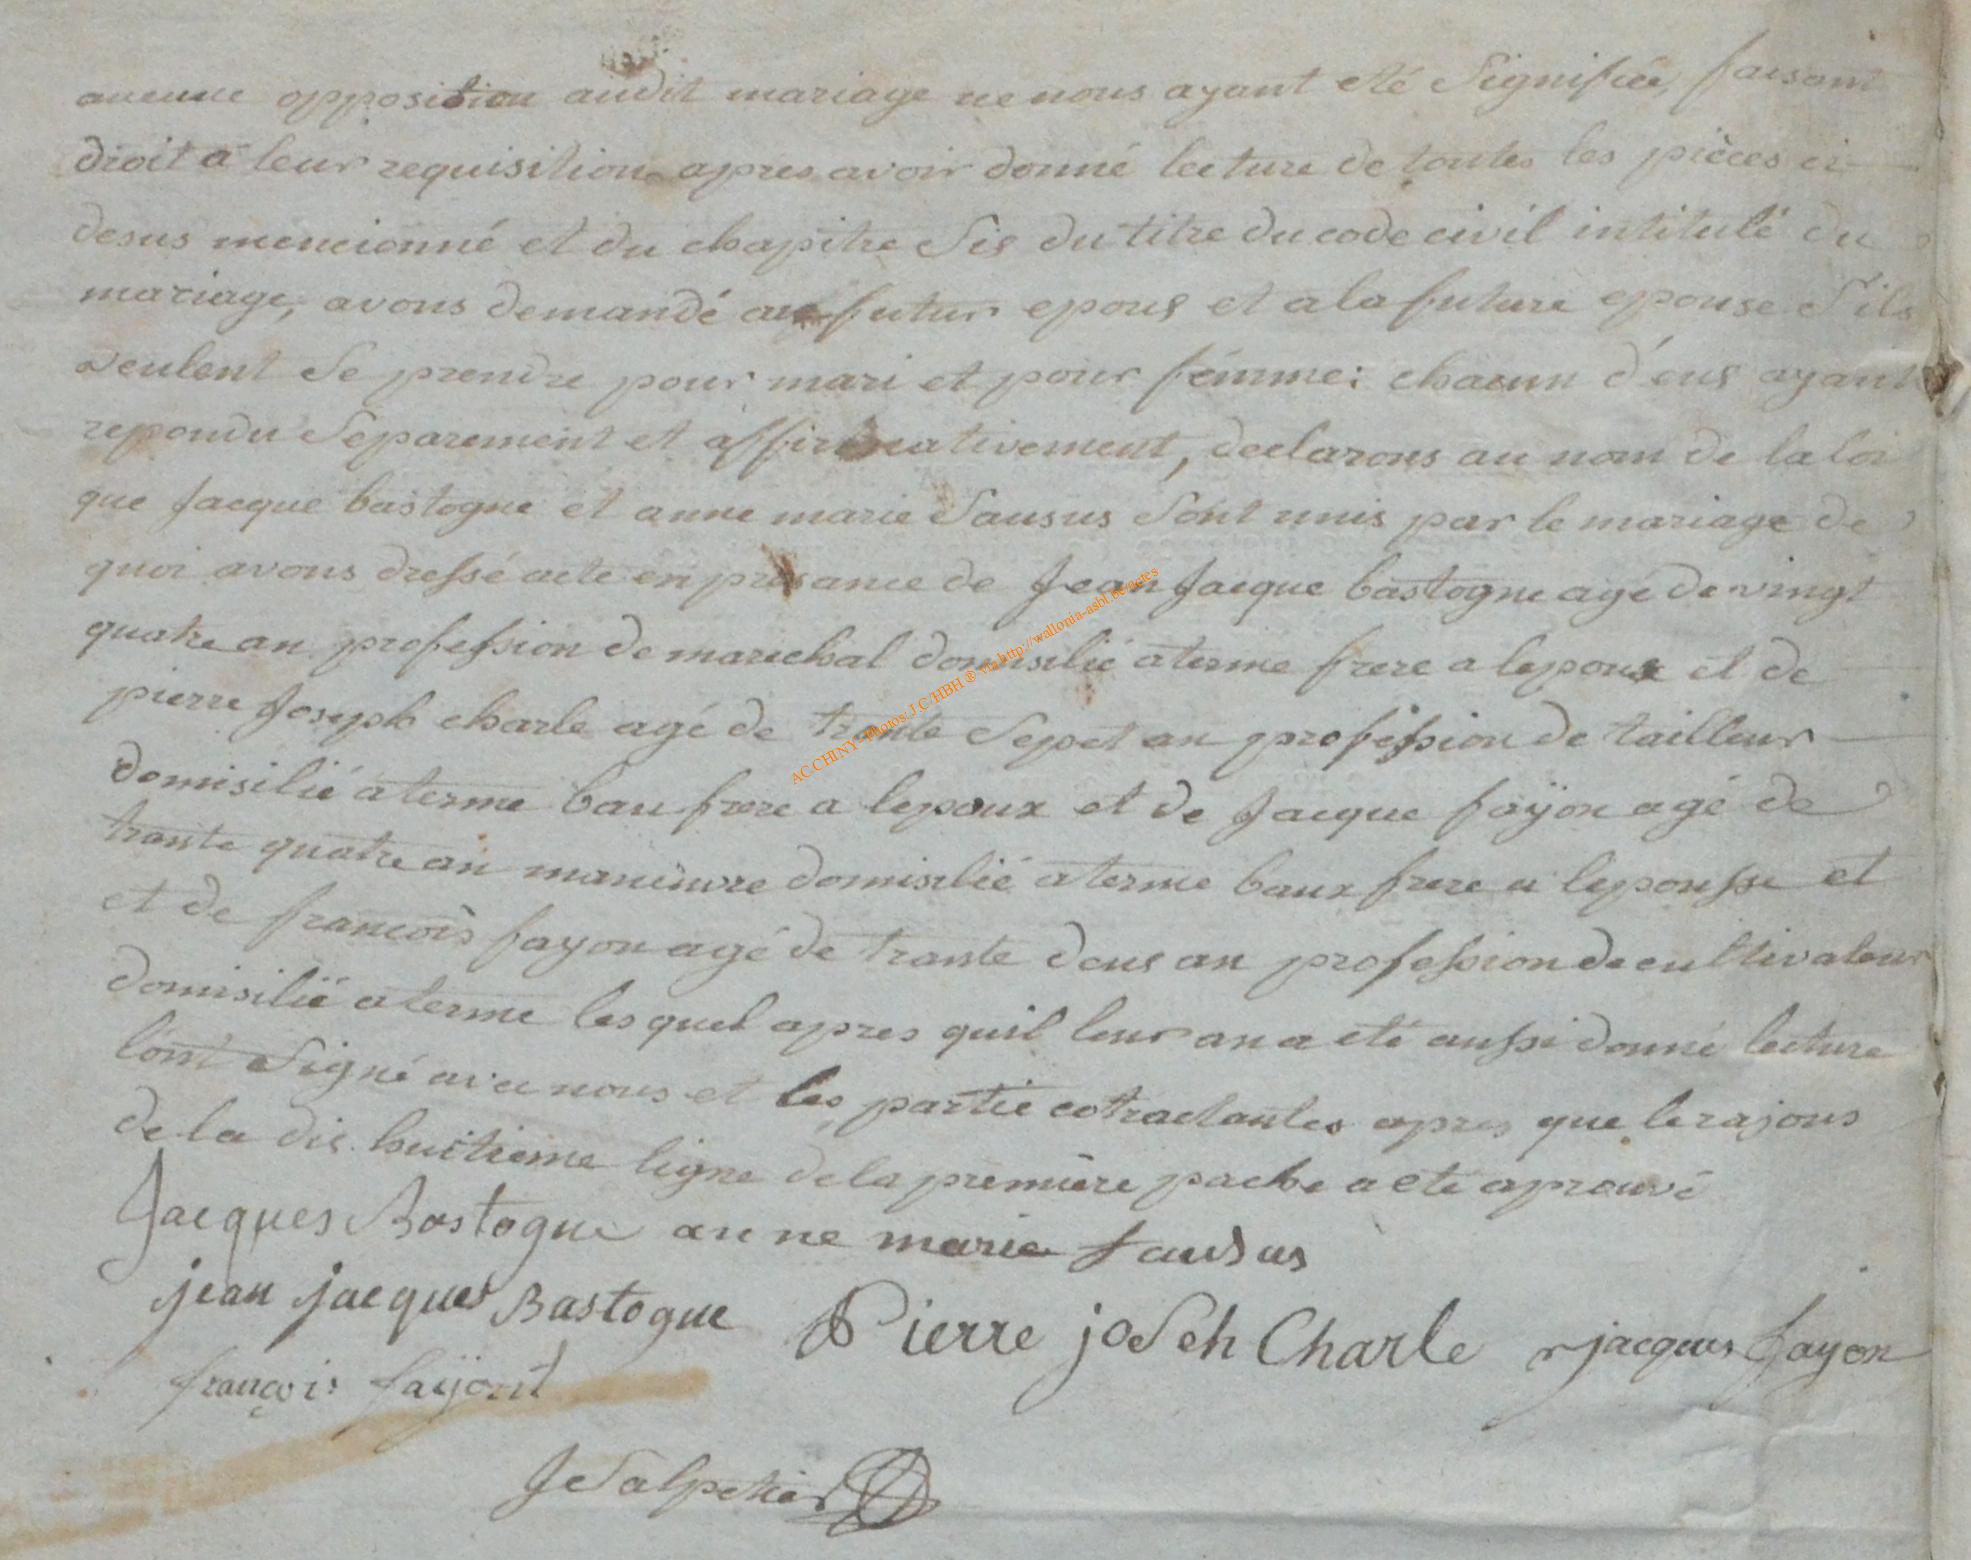 aucune opposition audit mariage ne nous ayant eté Signifiée, faisant
droit a leur requisition apres avoir donné lecture de toutes les pièces ci
desus mencionné et du chapitre Sis du titre du code civil intitulé du
mariage, avons demandé au futur epous et a la future epouse S'ils
veulent Se prendre pour mari et pour fémme; chacun d'eus ayant
repondu Séparement et affirmativement, declarons au nom de la loi
que Jacque bastogne et anne marie Sausus Sont unis par le mariage de
quoi avons dressé acte en présance de Jean Jacque bastogne agé de vingt
quatre an profession de marechal domisilié a terme frere a lepoux et de
pierre Joseph charle agé de trante Sepet an profession de tailleur
domisilié a terme bau frere a lepoux et de Jacque fayon agé de
trante quatre an maneuvre domisilié a terme baux frere a lepousse et
et de francois fayon agé de trante deus an profession de cultivateur
domisilié a terme les quel apres quil leur an a eté aussi donné lecture
lont Signé avec nous et les partie cotractantes apres que le rajous
de la dis huitieme ligne de la premiere pache a eté aprouvé
Jacques Bastogne anne marie Sausus
jean jacques Bastogne Pierre joseh Charle jacques fayon
françois fayont
J Salpetier
AC CHINY - Photos: J.C/HBH ® via http://wallonia-asbl.be/actes